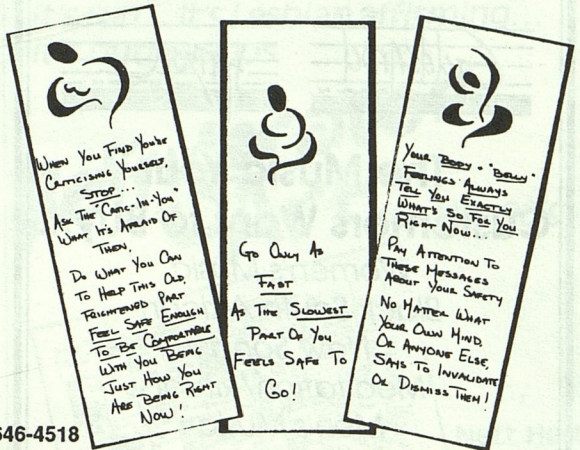 WHEN YOU FIND YOU'RE
CRITICISING YOURSELF,
STOP...
ASK THE "CRITIC-IN-YOU"
WHAT IT'S AFRAID OF
THEN,
DO WHAT YOU CAN
TO HELP THIS OLD,
FRIGHTENED PART
FEEL SAFE ENOUGH
TO BE COMFORTABLE
WITH YOU BEING
JUST HOW YOU
ARE BEING RIGHT
NOW!
GO ONLY AS
FAST
AS THE SLOWEST
PART OF YOU
FEELS SAFE TO
GO!
YOUR BODY - "BELLY"
FEELINGS ALWAYS
TELL YOU EXACTLY
WHAT'S SO FOR YOU
RIGHT NOW...
PAY ATTENTION TO
THESE MESSAGES
ABOUT YOUR SAFETY
NO MATTER WHAT
YOUR OWN MIND,
OR ANYONE ELSE,
SAYS TO INVALIDATE
OR DISMISS THEM!
646-4518